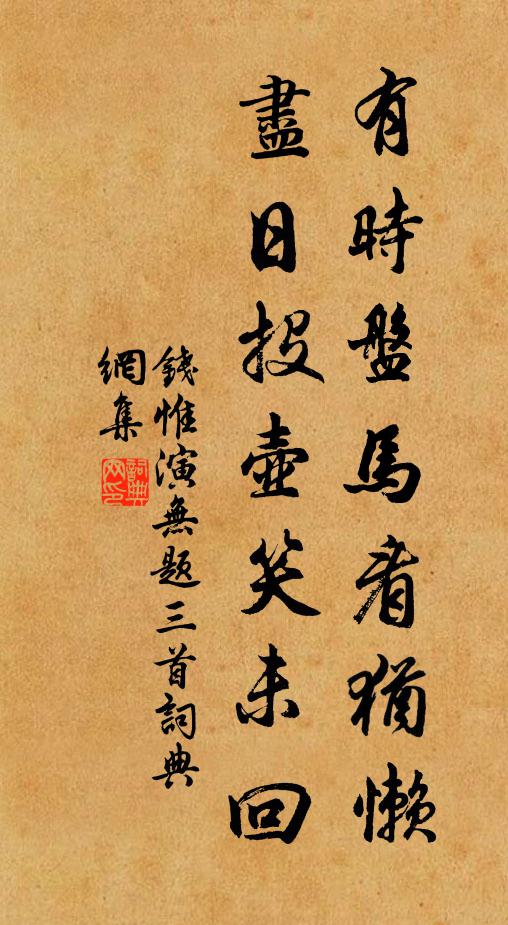 有時盤馬看猶懶
盡日投壺笑未回
錢惟演無題三首詞典
網集
詞典網印